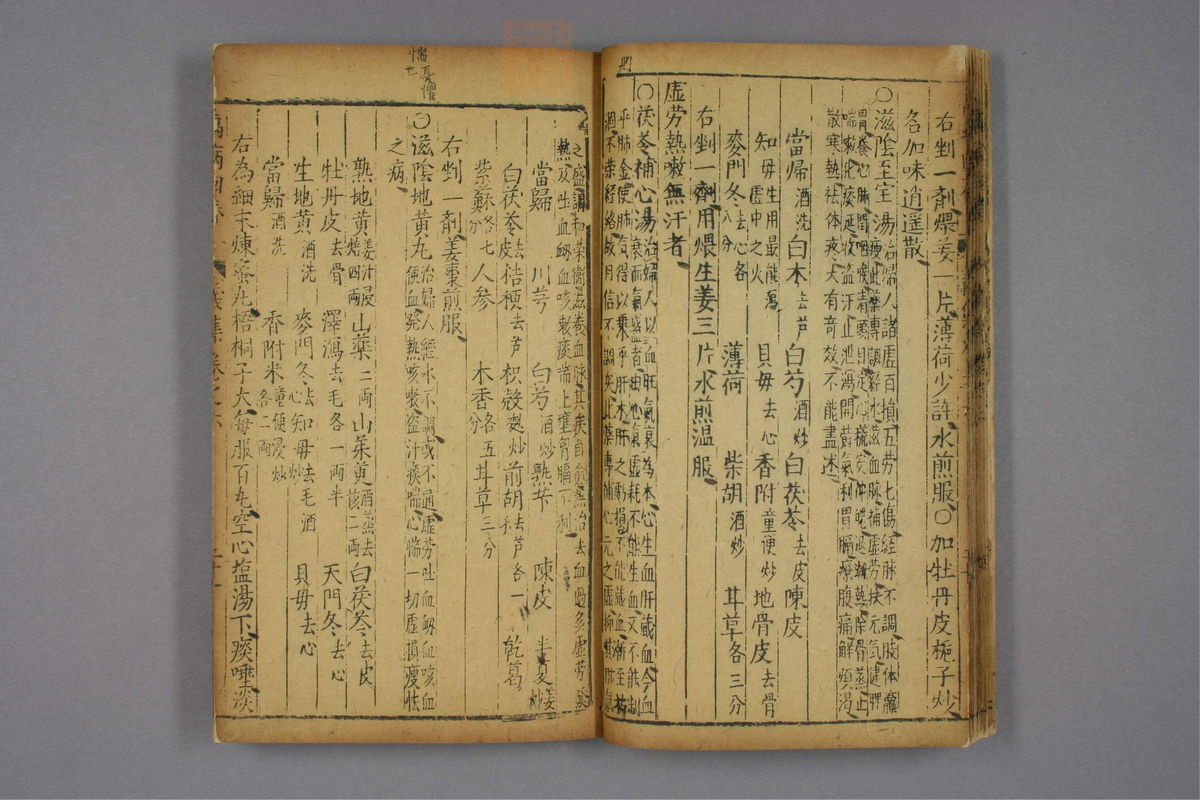 則
右剉一劑煨姜一片薄荷少許水煎服〇加牡丹皮梔子炒
名加味逍遙散
〇滋陰至宝湯治婦人諸虛百損五劳七傷経脉不調肢体羸
瘦此藥專調経水滋血脉補虛劳扶元気健脾
胃養心肺潤咽喉清頭目定心慌安神魄退潮熱除骨蒸止
喘嗽化痰涎收盜汗止泄瀉開欝気利胃膈療腹痛解煩渴
散寒熱祛体疼大有奇效不能盡述
當帰酒洗 白木去芦 白芍酒炒 白茯苓去皮 陳皮
知毋生用最能瀉虛中之火 貝毋去心 香附童便炒 地骨皮去骨
麥門冬去心各八分 薄荷 柴胡酒炒 甘草各三分
右剉一劑用煨生姜三片水煎温服
虛劳熱嗽無汗者
〇茯苓補心湯治婦人以血旺氣衰為本心生血肝藏血今血
衰而氣盛者由心氣虛耗不能生血又不能制
乎肺金使肺気得以乘乎肝木肝之虧損不能藏血漸至枯
涸不荣経絡故月信不調矣此藥專補心元之虛抑其肺気
之盛調和荣衛滋養血脉其疾自愈兼治去血過多虛劳発
熱及吐血衂血咳嗽痰喘上壅胷膈不利
當歸 川芎 白芍酒炒 熟苄 陳皮 半夏姜炒
白茯苓去皮 桔梗去芦 枳殼麩炒 前胡去芦各一 乾葛
紫蘇各七分 人參 木香各五分 甘草三分
右剉一劑姜棗煎服
〇滋陰地黄丸治婦人經水不調或不通虛劳吐血衂血咳血
便血発熱咳嗽盜汗痰喘心惴一切虛損瘦怯
之病
熟地黄姜汁浸焙四両 山藥二両 山茱萸酒蒸去核二両 白茯苓去皮
牡丹皮去骨 澤瀉去毛各一両半 天門冬去心
生地黄酒洗 麥門冬去心 知毋去毛酒炒 貝毋去心
當歸酒洗 香附米童便浸炒各二両
右為細末煉蜜丸梧桐子大每服百丸空心塩湯下痰唾淡
惴憂懼也